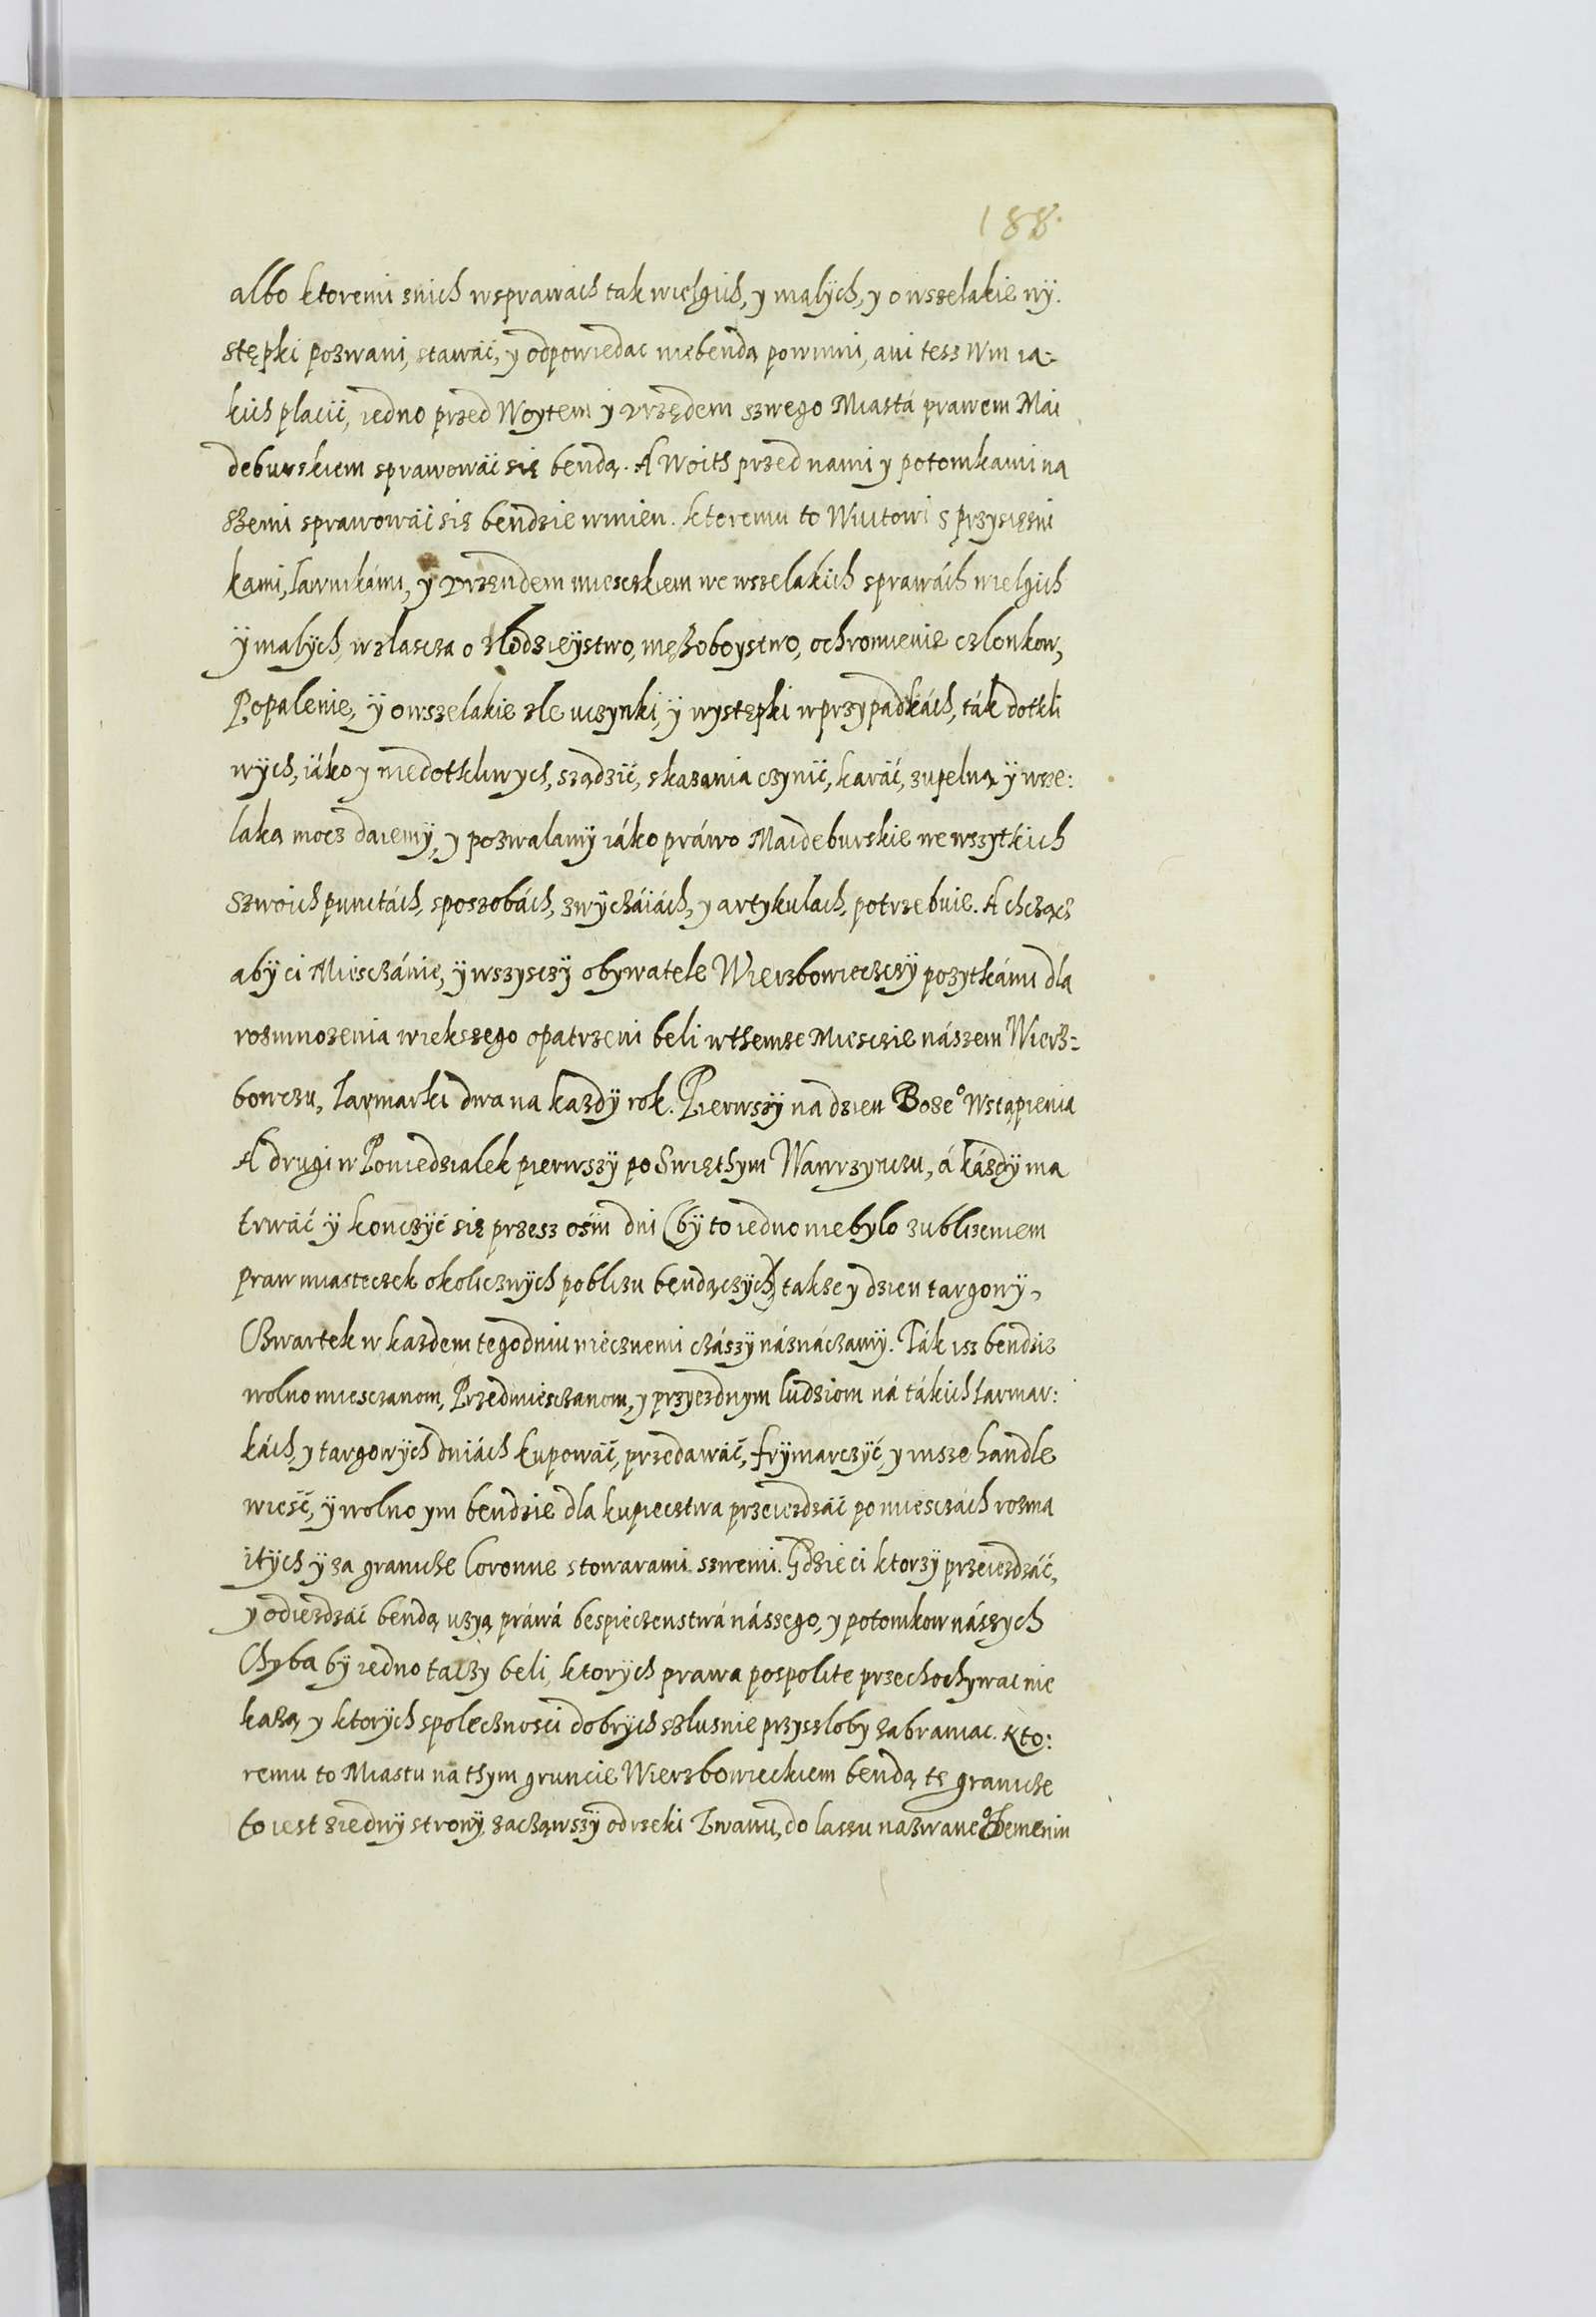 188.
albo ktoremi snich wsprawach tak wielgich, y malÿch, y o wszelakie wÿ.
stępki pozwani, stawać, y odpowiedac niebendą powinni, ani tesz win ia-
kich placić, iedno przed Woytem y Vrzędem szwego Miastá prawem Mai
deburskiem sprawować się bendą. A Woith przed nami y potomkami na
szemi sprawować się bendzie winien. ktoremu to Wiutowi s przysięźni
kami, lawnikámi, y Vrzendem mieszkiem we wszelakich sprawách wielgich
ÿ malÿch, wzlascza o zlodzieÿstwo, męźoboystwo, ochromienie czlonkow,
Popalenie, ÿ owszelakie zle uczynki, ÿ występki wprzypadkách, ták dotkli
wÿch, iáko y niedotkliwych, sządzić, skazania czynić, karáć, zupelną ÿ wsze:
laką mocz daiemÿ, y pozwalamÿ iáko práwo Maideburskie we wszytkich
szwoich punctách, sposzobách, zwÿcźáiách, y artykulach, potrzebuie. A chcźącz
abÿ ci Miesczánie, ÿ wszysczÿ obywatele Wierzbowieczczÿ pozytkámi dla
rozmnozenia wiekszego opatrzeni beli wthemze Miesczie nászem Wierz-
bowczu, Iarmarki dwa na kazdÿ rok. Pierwszÿ na dzien Boze° Wstąpienia
A drugi w Poniedzialek pierwszÿ po Swięthym Wawrzynczu, á kázdÿ ma
trwáć ÿ konczÿć się przesz ośm dni (bÿ to iedno niebylo zublizeniem
praw miasteczek okolicznÿch poblizu bendączÿch) takze y dzien targowÿ,
Czwartek w kazdem tegodniu wiecznemi czászÿ náznáczamÿ. Ták isz bendzie
wolno miesczanom, Przedmiesczanom, y przyezdnym ludziom ná tákich Iarmar:
kách, y targowÿch dniách kupowáć, przedawáć, frÿmarczÿć, y insze handle
wieść, ÿ wolno ym bendzie dla kupiecztwa przeiezdzáć po miesczách rozma
itÿch ÿ za granicze Coronne stowarami szwemi. Gdzie ci ktorzÿ przeiezdzáć,
y odiezdzáć bendą uzyą práwá bespieczenstwá nászego, y potomkow nászych
Chyba bÿ iedno taczy beli, ktorÿch prawa pospolite przechochywac nie
kazą, y ktorÿch spolecznosci dobrÿch szlusnie przyszloby zabraniac. Kto:
remu to Miastu na thym gruncie Wierzbowieckiem bendą te granicze
to iest ziednÿ stronÿ, zacząwszÿ odrzeki Zwanu, do lassu nazwane° Jemenin